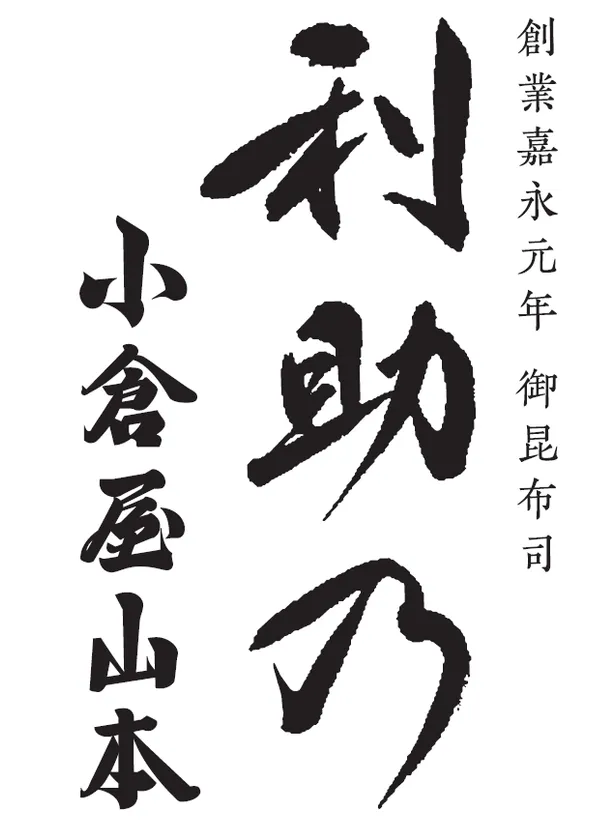 創業嘉永元年 御昆布司
利助乃
小倉屋山本